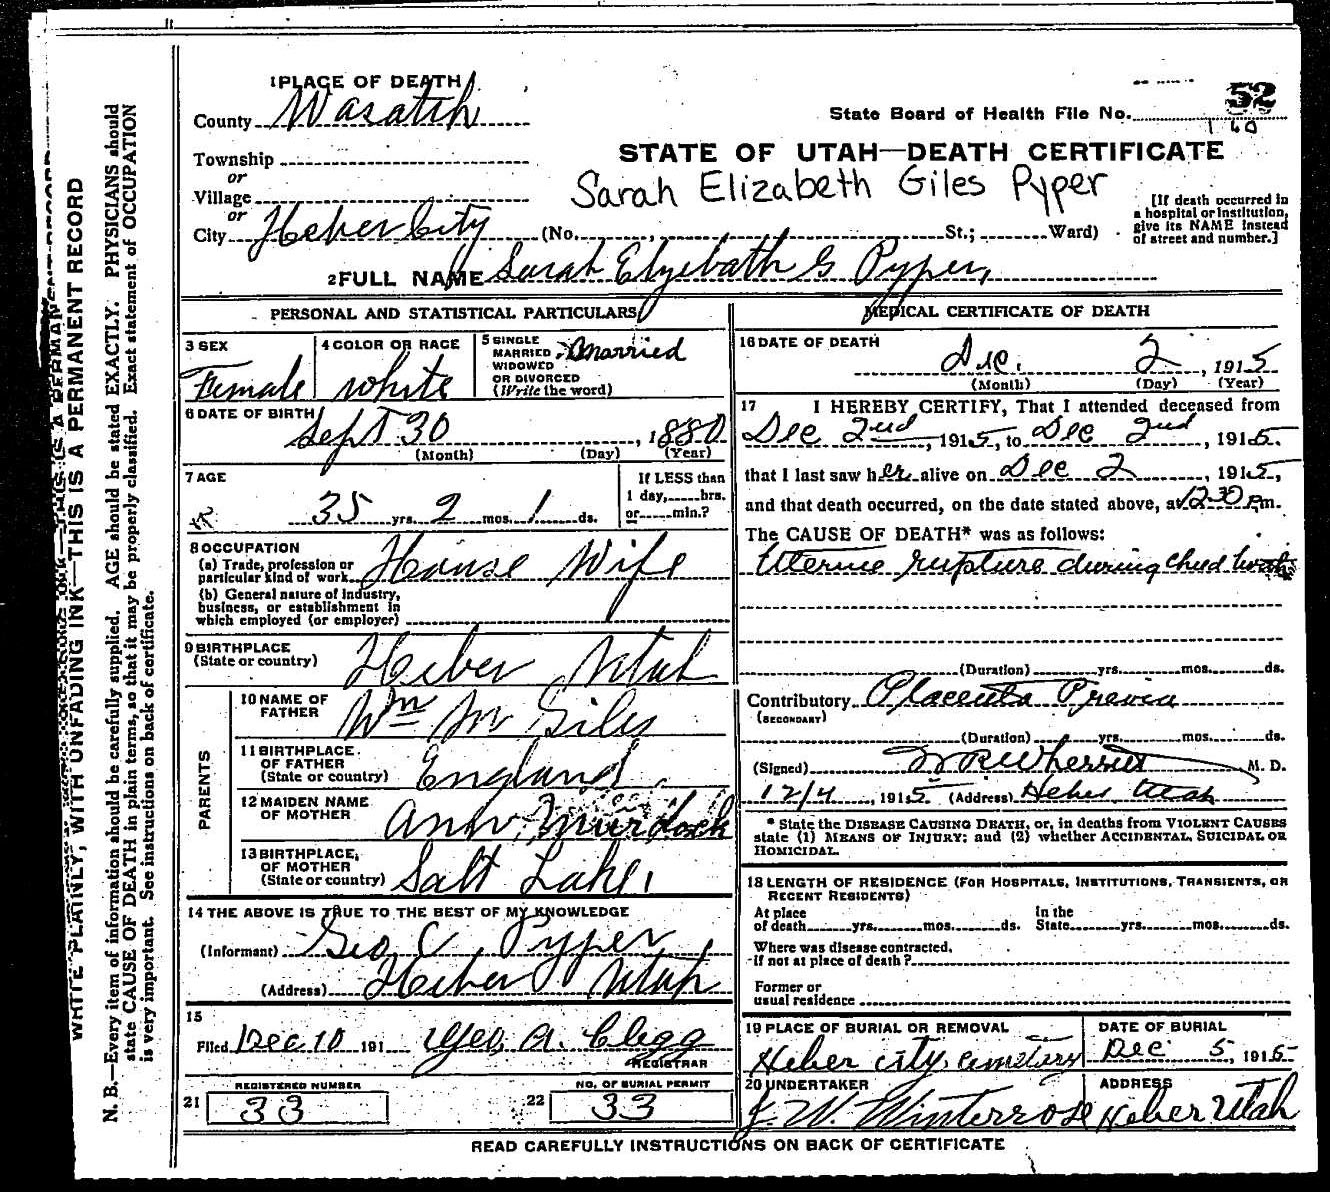 1 PLACE OF DEATH
County Wasatch
Township
or
Village
or
City Heber City (No. , St.; Ward)
State Board of Health File No. 52
160
STATE OF UTAH—DEATH CERTIFICATE
Sarah Elizabeth Giles Pyper
[If death occurred in
a hospital or institution,
give its NAME instead
of street and number.]
2 FULL NAME Sarah Elyzebath G Pyper,
PERSONAL AND STATISTICAL PARTICULARS
3 SEX
Female
4 COLOR OR RACE
white
5 SINGLE
MARRIED
WIDOWED
OR DIVORCED
(Write the word)
Married
6 DATE OF BIRTH
Sept 30, 1880
(Month) (Day) (Year)
7 AGE
35 yrs. 2 mos. 1 ds.
If LESS than
1 day, hrs.
or min.?
8 OCCUPATION
(a) Trade, profession or
particular kind of work House Wife
(b) General nature of industry,
business, or establishment in
which employed (or employer)
9 BIRTHPLACE
(State or country) Heber Utah
PARENTS
10 NAME OF
FATHER Wm M Giles
11 BIRTHPLACE
OF FATHER
(State or country) England
12 MAIDEN NAME
OF MOTHER Ann Murdock
13 BIRTHPLACE
OF MOTHER
(State or country) Salt Lake
14 THE ABOVE IS TRUE TO THE BEST OF MY KNOWLEDGE
(Informant) Geo C Pyper
(Address) Heber Utah
15
Filed Dec 10 191 Geo, A. Clegg
REGISTRAR
REGISTERED NUMBER
21 33
NO. OF BURIAL PERMIT
22 33
MEDICAL CERTIFICATE OF DEATH
16 DATE OF DEATH
Dec. 2, 1915
(Month) (Day) (Year)
17 I HEREBY CERTIFY, That I attended deceased from
Dec 2nd, 1915, to Dec 2nd, 1915.
that I last saw her alive on Dec 2, 1915,
and that death occurred, on the date stated above, at 12 30 Pm.
The CAUSE OF DEATH* was as follows:
Uterine rupture during child birth
(Duration) yrs. mos. ds.
Contributory Placenta Previa
(SECONDARY)
(Duration) yrs. mos. ds.
(Signed) W R Wherritt M. D.
12/4, 1915 (Address) Heber Utah
* State the DISEASE CAUSING DEATH, or, in deaths from VIOLENT CAUSES
state (1) MEANS OF INJURY; and (2) whether ACCIDENTAL, SUICIDAL OR
HOMICIDAL.
18 LENGTH OF RESIDENCE (FOR HOSPITALS, INSTITUTIONS, TRANSIENTS, OR
RECENT RESIDENTS)
At place
of death yrs. mos. ds.
In the
State yrs. mos. ds.
Where was disease contracted,
if not at place of death?
Former or
usual residence
19 PLACE OF BURIAL OR REMOVAL
Heber City Cemetery
DATE OF BURIAL
Dec 5, 1915
20 UNDERTAKER
J. W. Winterrose
ADDRESS
Heber Utah
READ CAREFULLY INSTRUCTIONS ON BACK OF CERTIFICATE
WRITE PLAINLY, WITH UNFADING INK—THIS IS A PERMANENT RECORD
N. B.—Every item of information should be carefully supplied. AGE should be stated EXACTLY. PHYSICIANS should
state CAUSE OF DEATH in plain terms, so that it may be properly classified. Exact statement of OCCUPATION
is very important. See instructions on back of certificate.